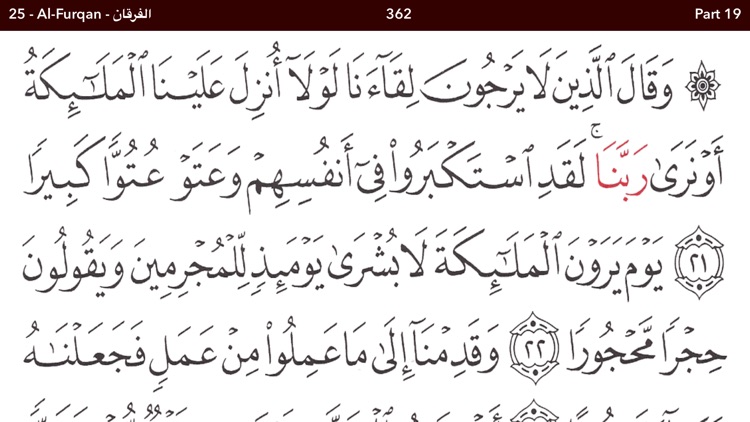 25 - Al-Furqan - الفرقان 362 Part 19
۞ وَقَالَ ٱلَّذِينَ لَا يَرْجُونَ لِقَآءَنَا لَوْلَآ أُنزِلَ عَلَيْنَا ٱلْمَلَـٰٓئِكَةُ
أَوْ نَرَىٰ رَبَّنَا ۗ لَقَدِ ٱسْتَكْبَرُوا۟ فِىٓ أَنفُسِهِمْ وَعَتَوْ عُتُوًّا كَبِيرًا
٢١ يَوْمَ يَرَوْنَ ٱلْمَلَـٰٓئِكَةَ لَا بُشْرَىٰ يَوْمَئِذٍ لِّلْمُجْرِمِينَ وَيَقُولُونَ
حِجْرًا مَّحْجُورًا ٢٢ وَقَدِمْنَآ إِلَىٰ مَا عَمِلُوا۟ مِنْ عَمَلٍ فَجَعَلْنَـٰهُ